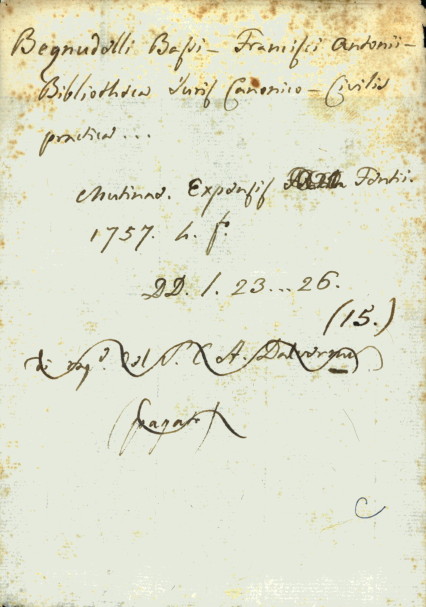 Begnudelli Bassi - Francisci Antonii -
Bibliotheca Juris Canonico - Civilis
practica ...
Mutinae. Expensis Fontis.
1757. 4. f.
DD. 1. 23 ... 26.
(15.)
di rag.e del P. A.
(spagato)
C